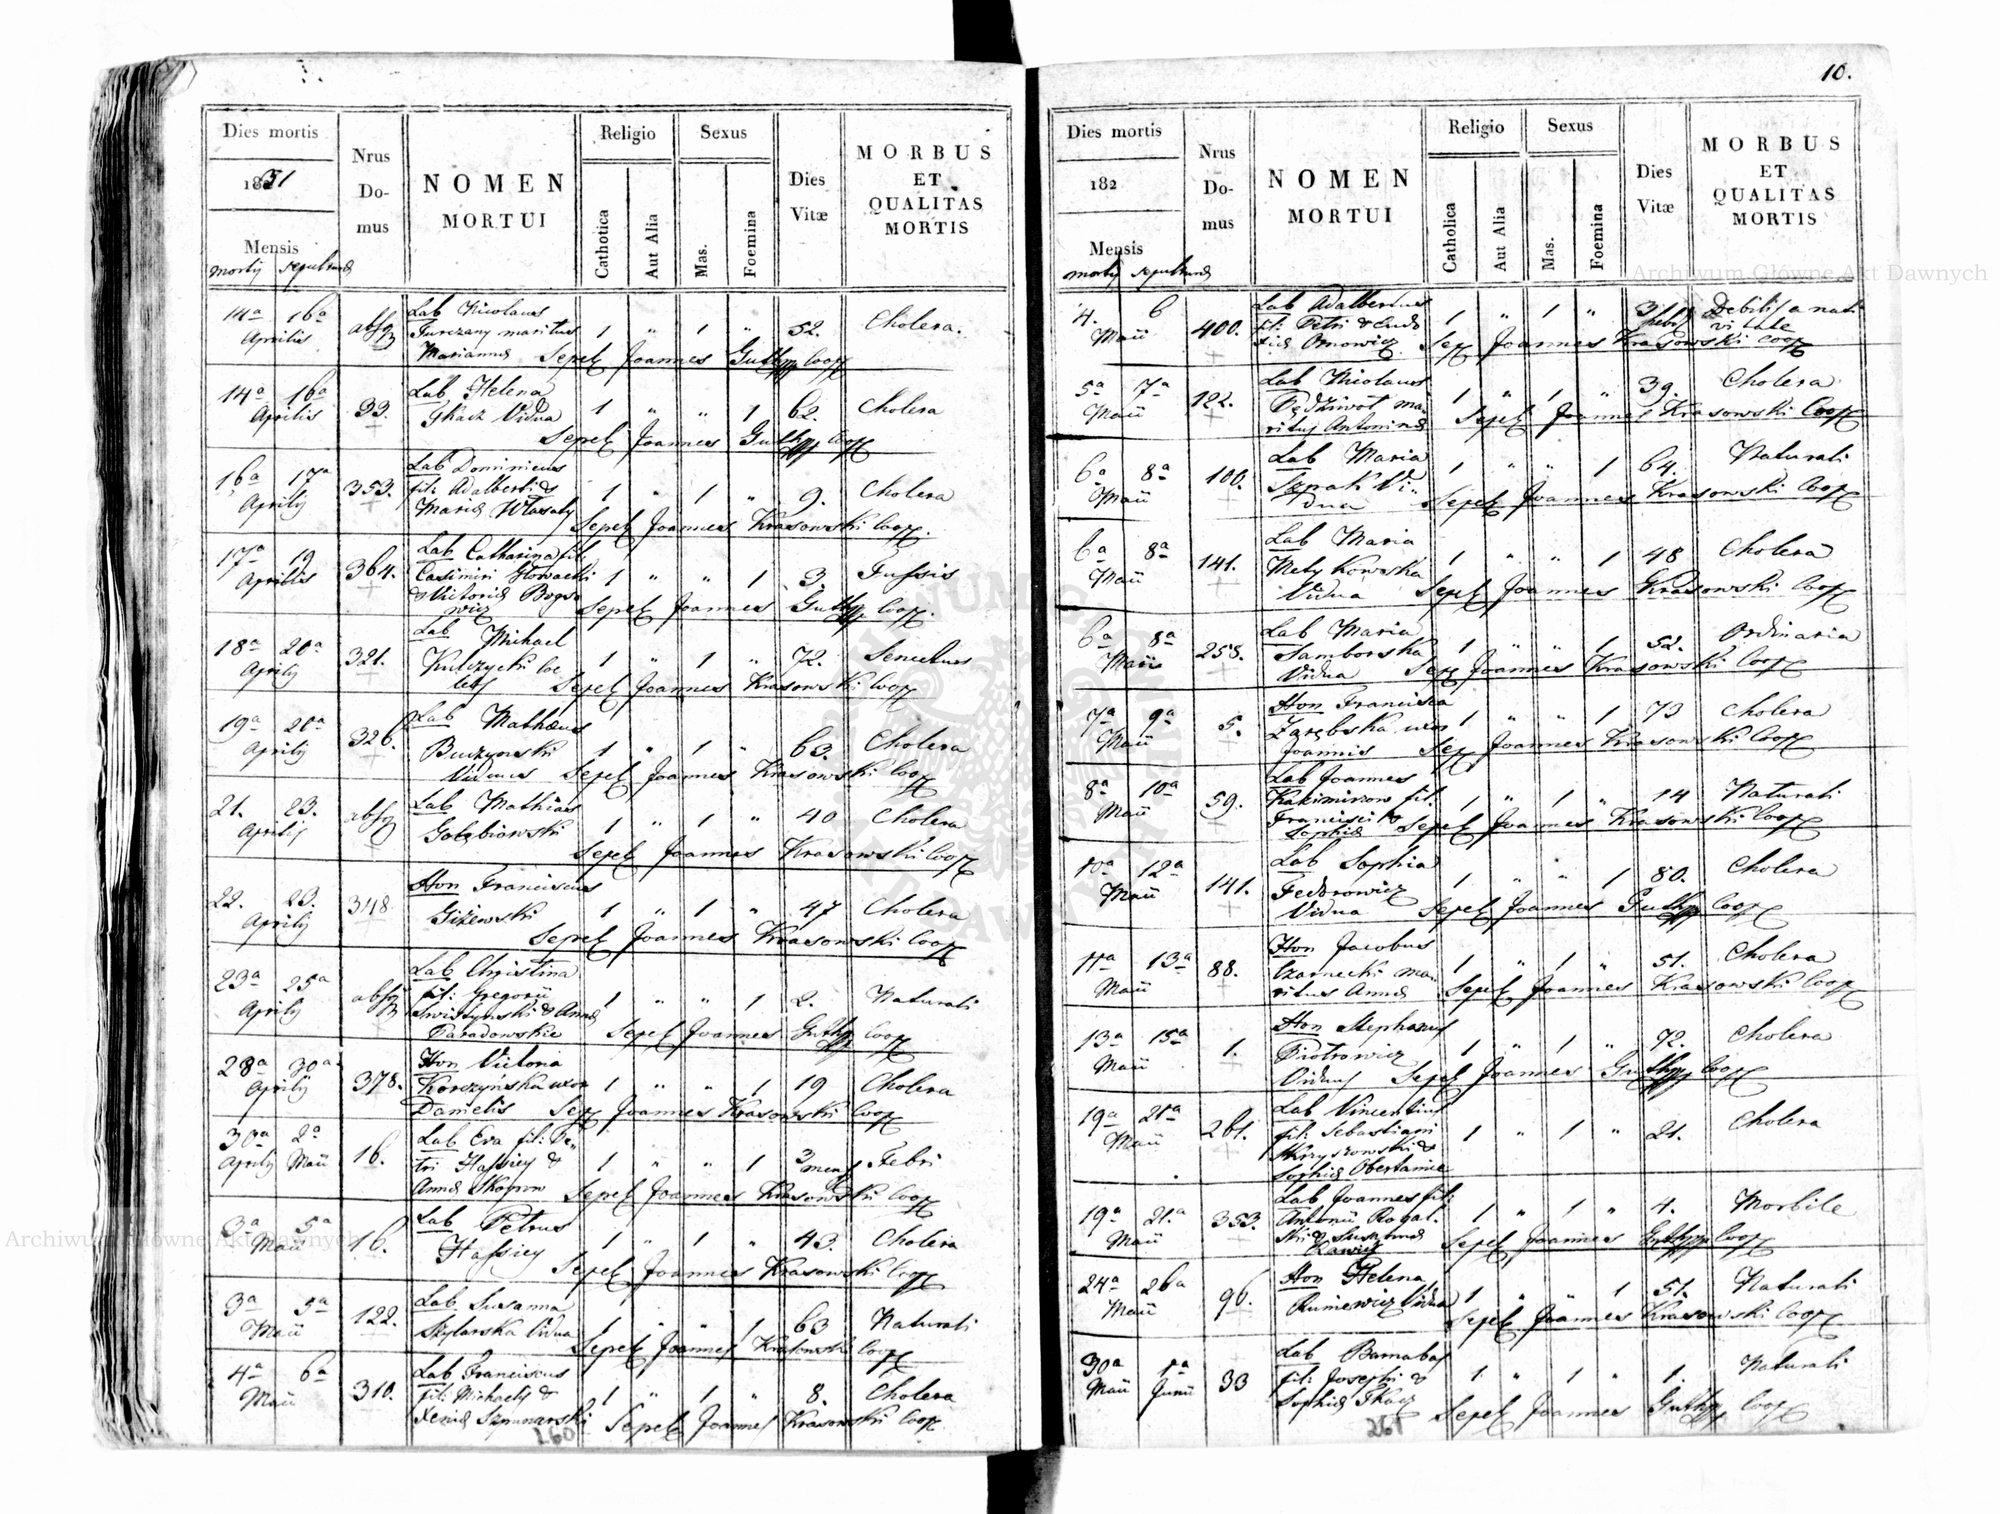 10.
Dies mortis
1831
Mensis
mortis sepulturae
Nrus Do- mus
NOMEN MORTUI
Religio
Catholica
Aut Alia
Sexus
Mas.
Foemina
Dies Vitæ
MORBUS ET QUALITAS MORTIS
14a 16a Aprilis
Lab Nicolaus
maritus 1 " 1 " 52. Cholera.
Mariannae Sepel Joannes Coop
14a 16a Aprilis 33.
Lab Helena
Tkacz Vidua 1 " " 1 62. Cholera
Sepel Joannes Coop
16a 17a Aprilis 353.
Lab Dominicus
fil: Adalberti & 1 " 1 " 9. Cholera
Mariae Sepel Joannes Krasowski Coop.
17a 19 Aprilis 364.
Lab Catharina fil:
Casimiri Słowacki 1 " " 1 3. Tussis
& Victoriae
Sepel Joannes Coop.
18a 20a Aprilis 321.
Lab Michael
Kulczycki 1 " 1 " 72. Senectus
Sepel Joannes Krasowski Coop
19a 20a Aprilis 326.
Lab Mathaeus
Buczyowski 1 " 1 " 63. Cholera
Viduus Sepel Joannes Krasowski Coop
21. 23. Aprilis
Lab Mathias
Gołębiowski 1 " 1 " 40 Cholera
Sepel Joannes Krasowski Coop
22. 23. Aprilis 348
Hon Franciscus
Giżewski 1 " 1 " 47 Cholera
Sepel Joannes Krasowski Coop
23a 25a Aprilis
Lab Christina
fil: Gregorii
& Annae 1 " " 1 2. Naturali
Paradowskie Sepel Joannes Coop
28a 30a Aprilis 378.
Hon Victoria
Korczyńska uxor 1 " " 1 19 Cholera
Danielis Sep Joannes Krasowski Coop
30a Aprilis 2a Maii 16.
Lab Eva fil: Pe-
tri Hassiey & 1 " " 1 3 mens Febri
Annae Skopow Sepel Joannes Krasowski Coop
3a 5a Maii 16.
Lab Petrus
Hassiey 1 " 1 " 43. Cholera
Sepel Joannes Krasowski Coop
3a 5a Maii 122.
Lab Susanna
Szylarska Vidua 1 " " 1 63 Naturali
Sepel Joannes Krasowski Coop
4a 6a Maii 310.
Lab Franciscus
fil: Michaelis & 1 " 1 " 8. Cholera
Xeniae Szpunarski Sepel Joannes Krasowski Coop
260
Dies mortis
182
Mensis
mortis sepulturae
Nrus Do- mus
NOMEN MORTUI
Religio
Catholica
Aut Alia
Sexus
Mas.
Foemina
Dies Vitæ
MORBUS ET QUALITAS MORTIS
4. 6 Maii 400.
Lab Adalbertus
fil: Petri & 1 " 1 " 3 hebd Debilis a nati
vitate
Sep Joannes Krasowski Coop
5a 7a Maii 122.
Lab Nicolaus
Pędziwot ma- 1 " 1 " 39. Cholera
ritus Antoninae Sepel Joannes Krasowski Coop
6a 8a Maii 100.
Lab Maria
Vi- 1 " " 1 64. Naturali
dua Sepel Joannes Krasowski Coop
6a 8a Maii 141.
Lab Maria
Metykowska 1 " " 1 48 Cholera
Vidua Sepel Joannes Krasowski Coop
6a 8a Maii 258.
Lab Maria
Samborska 1 " " 1 52. Ordinaria
Vidua Sep Joannes Krasowski Coop
7a 9a Maii 5.
Hon Francisca
Zarębska uxor 1 " " 1 73 Cholera
Joannis Sep Joannes Krasowski Coop
8a 10a Maii 59.
Lab Joannes
Kakimirzow fil. 1 " 1 " 14 Naturali
Francisci &
Sophiae Sepel Joannes Krasowski Coop
10a 12a Maii 141.
Lab Sophia
Fedorowicz 1 " " 1 80. Cholera
Vidua Sepel Joannes Coop
11a 13a Maii 88.
Hon Jacobus
Czarnecki ma- 1 " 1 " 51. Cholera
ritus Annae Sepel Joannes Krasowski Coop
13a 15a Maii 1.
Hon Stephanus
Piotrowicz 1 " 1 " 72. Cholera
Viduus Sepel Joannes Coop
19a 21a Maii 261.
Lab Vincentius
fil: Sebastiani 1 " 1 " 21. Cholera
Skrzyszowski &
Sophiae
19a 21a Maii 353.
Lab Joannes fil:
Antonii Rogal- 1 " 1 " 4. Morbile
ski &
Sepel Joannes Coop
24a 26a Maii 96.
Hon Helena
Runiewicz Vidua 1 " " 1 51. Naturali
Sepel Joannes Krasowski Coop
30a Maii 1a Junii 33
Lab Barnabas
fil: Josephi & 1. " 1 " 1. Naturali
Sophiae Tkacz
Sepel Joannes Coop
261
Archiwum Główne Akt Dawnych
Archiwum Główne Akt Dawnych